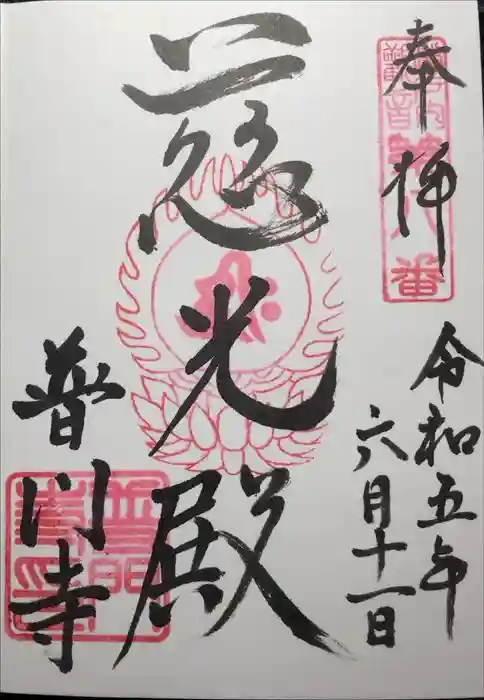 奉拝
令和五年
六月十一日
慈光殿
普門寺